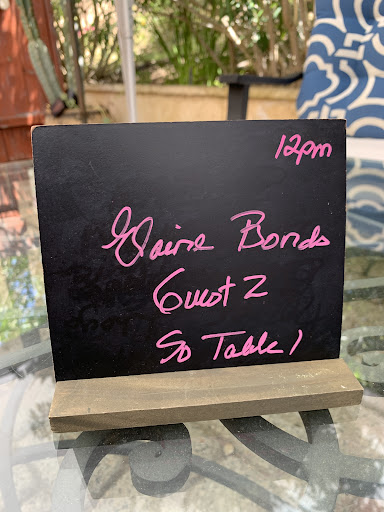 12pm
Elaine Bonds
Guest 2
So Table 1